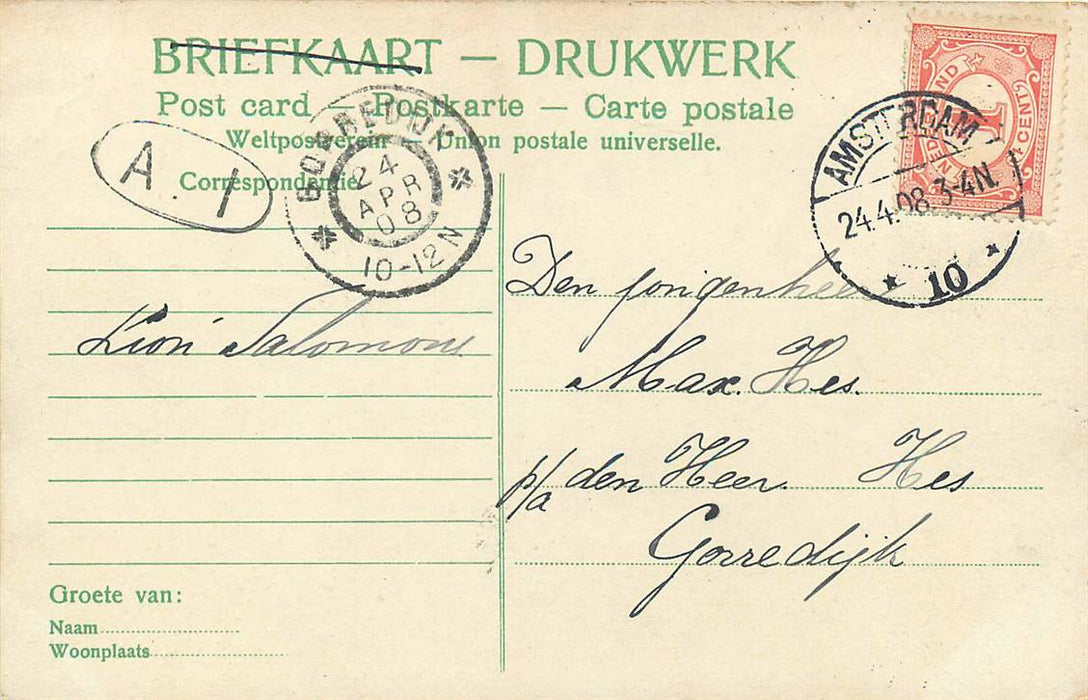 BRIEFKAART — DRUKWERK
Post card — Postkarte — Carte postale
Weltpostverein Union postale universelle.
Correspondentie
A I
GORREDIJK
24
APR
08
10-12N
AMSTERDAM
24.4.08 3-4N
10
NEDERLAND
1
CENT
Lion Salomons
Den jongenheer
Max. Hes.
p/a den Heer. Hes
Gorredijk
Groete van:
Naam
Woonplaats